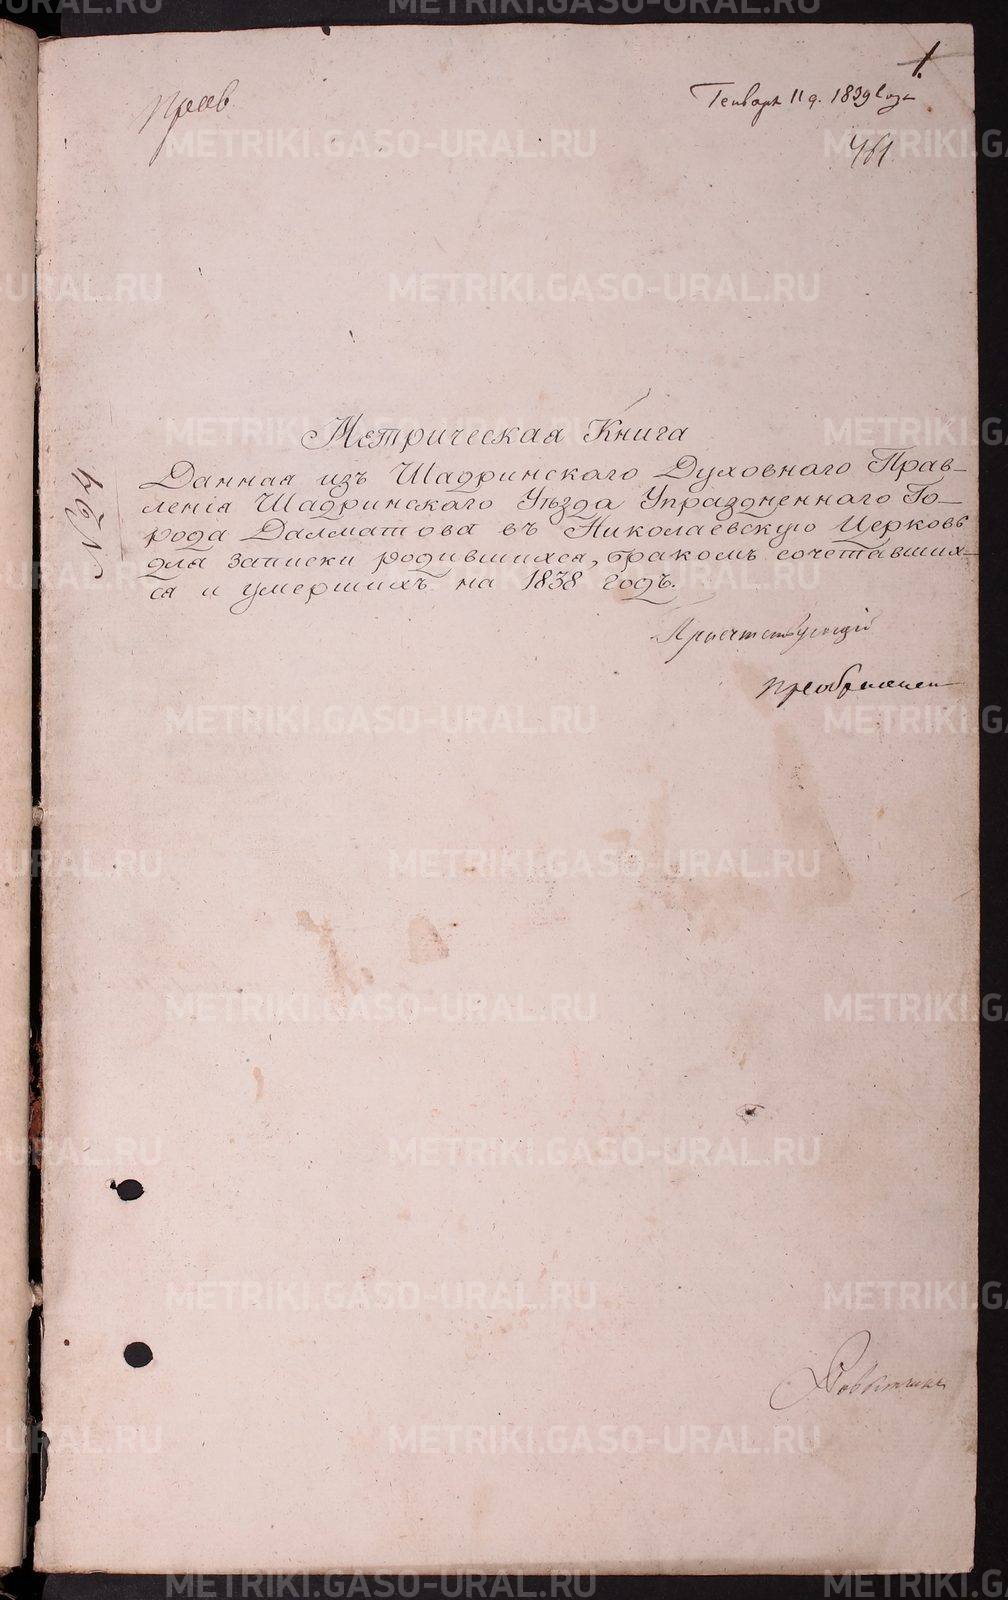 1.
Генваря 11 д. 1839 года
461
Метрическая Книга
Данная изъ Шадринскаго Духовнаго Прав-
ленія Шадринскаго Уѣзда Упраздненнаго Го-
рода Далматова въ Николаевскую Церковь
для записки родившихся, бракомъ сочетавших-
ся и умершихъ на 1838 годъ.
Присутствующій
METRIKI.GASO-URAL.RU